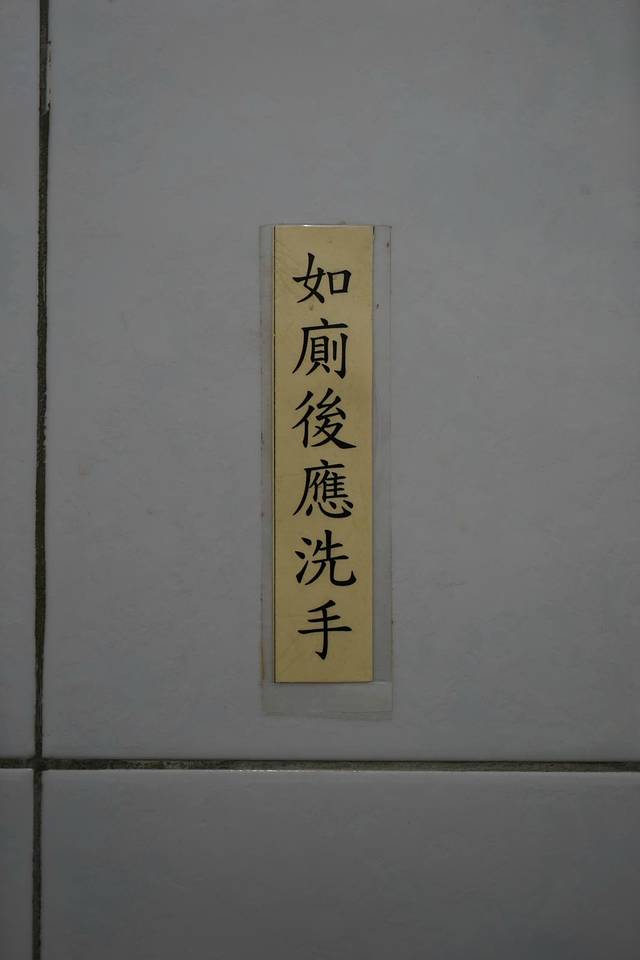 如廁後應洗手